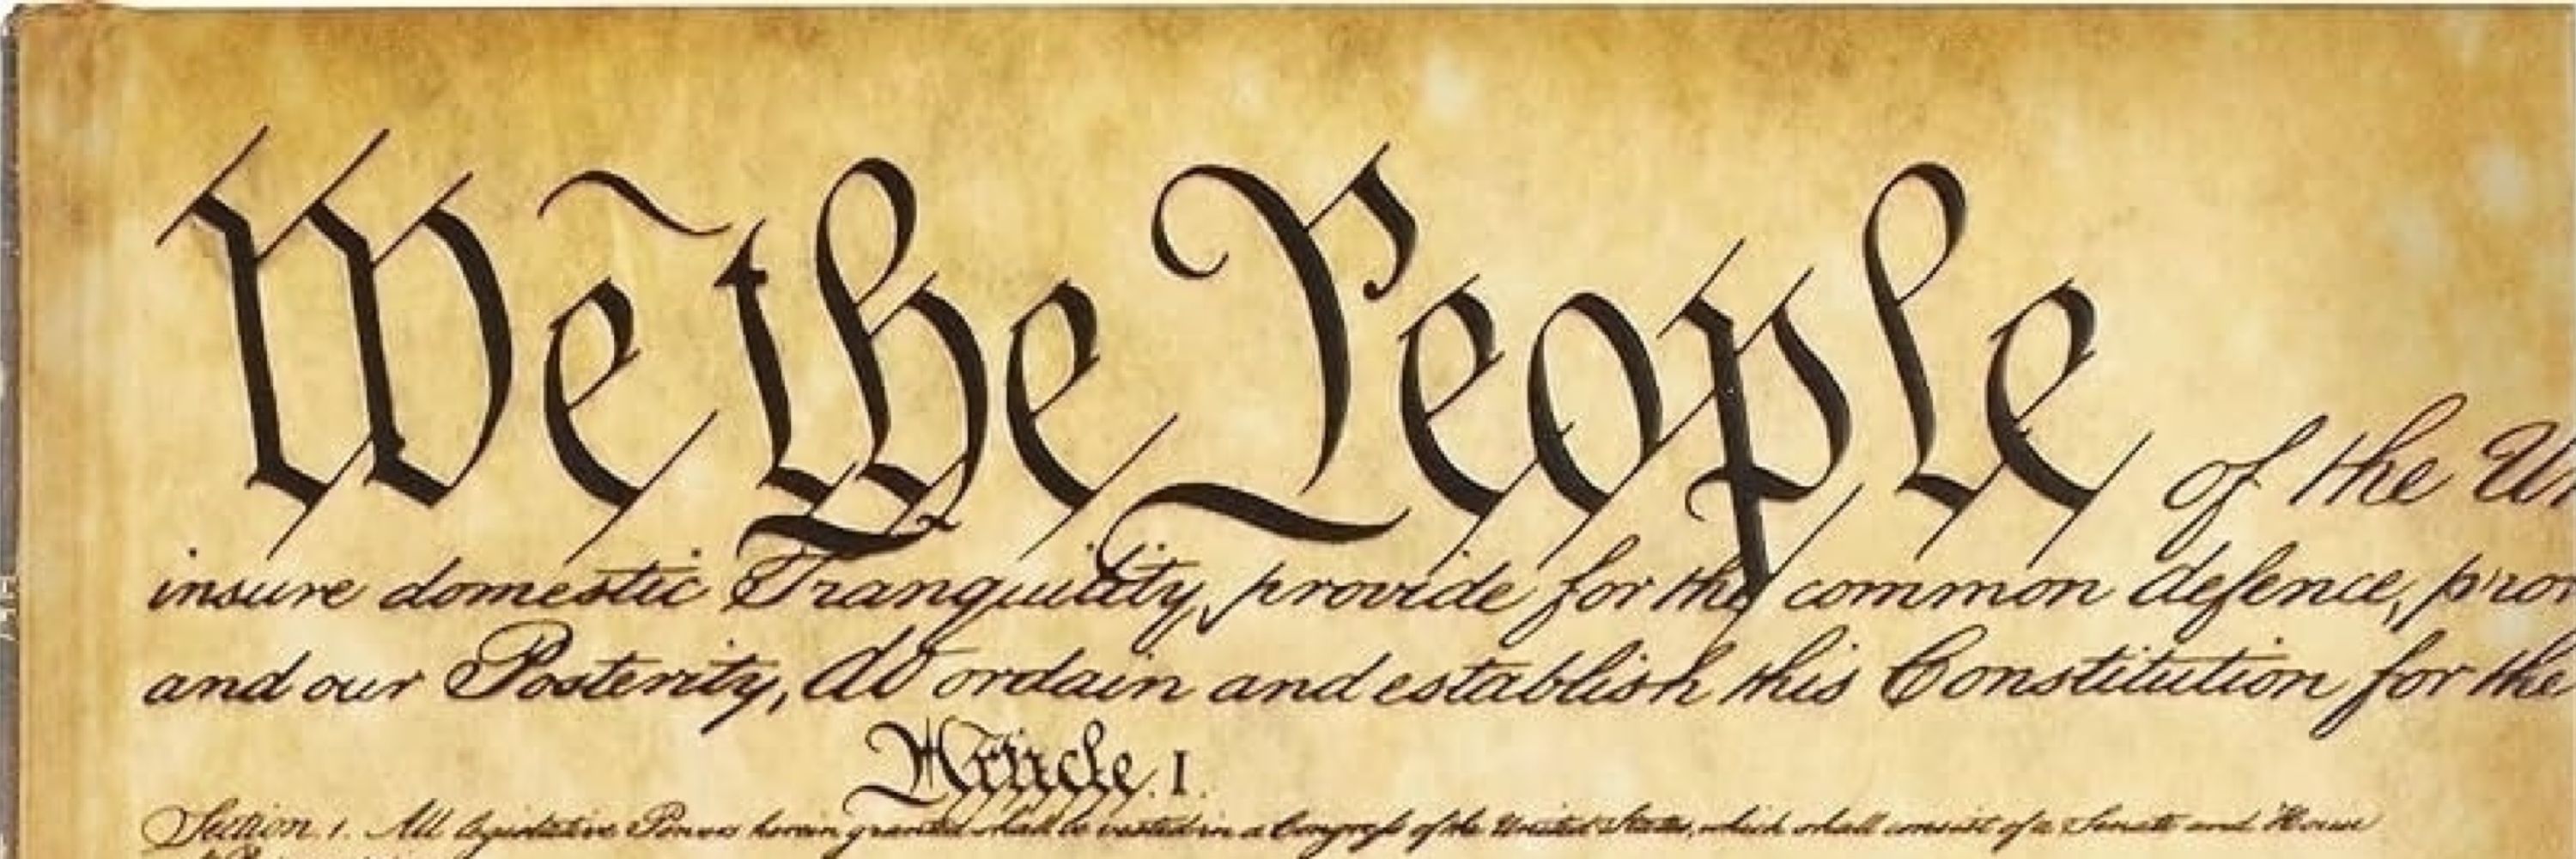 We the People of the Un
insure domestic Tranquility, provide for the common defence, pron
and our Posterity, do ordain and establish this Constitution for the
Article. I.
Section. 1. All legislative Powers herein granted shall be vested in a Congress of the United States, which shall consist of a Senate and House